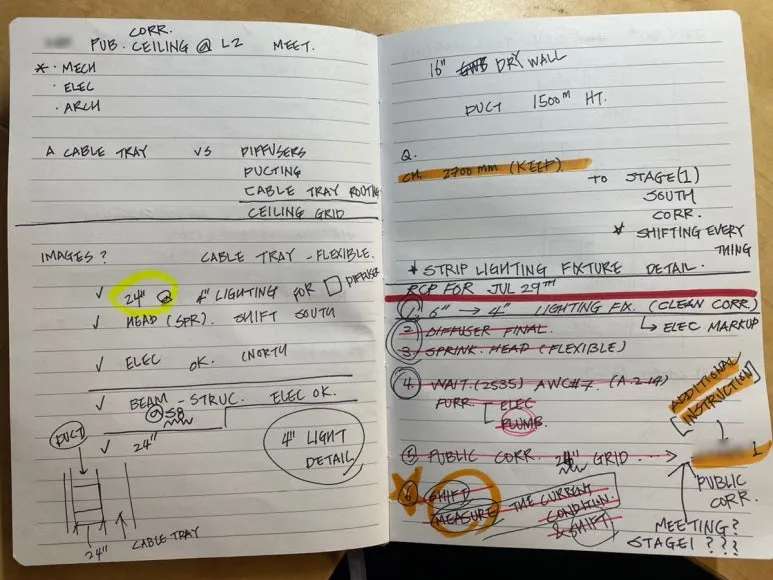 CORR.
PUB. CEILING @ L2 MEET.
* · MECH
· ELEC
· ARCH
A CABLE TRAY VS DIFFUSERS
DUCTING
CABLE TRAY ROUTING
CEILING GRID
IMAGES? CABLE TRAY - FLEXIBLE.
✓ 24" @ 4" LIGHTING FOR □ DIFFUSER
✓ HEAD (SPR). SHIFT SOUTH
✓ ELEC OK. (NORTH
✓ BEAM - STRUC. ELEC OK.
@ 58
DUCT
✓ 24"
4" LIGHT
DETAIL
24" CABLE TRAY
16" GWB DRY WALL
DUCT 1500m HT.
Q.
CH. 2700 mm (KEEP).
TO STAGE(1)
SOUTH
CORR.
* SHIFTING EVERY
THING
* STRIP LIGHTING FIXTURE DETAIL.
RCP FOR JUL 29TH
1. 6" → 4" LIGHTING FIX. (CLEAN CORR.)
↳ ELEC MARKUP
2 DIFFUSER FINAL.
3 SPRINK. HEAD (FLEXIBLE)
4 WAIT. (2535) AWC#7. (A.2-19)
FURR. ELEC
PLUMB.
ADDITIONAL
INSTRUCTION
5 PUBLIC CORR. 24" GRID → 1
6 SHIFT
MEASURE THE CURRENT
CONDITION
& SHIFT
PUBLIC
CORR.
MEETING?
STAGE1 ???